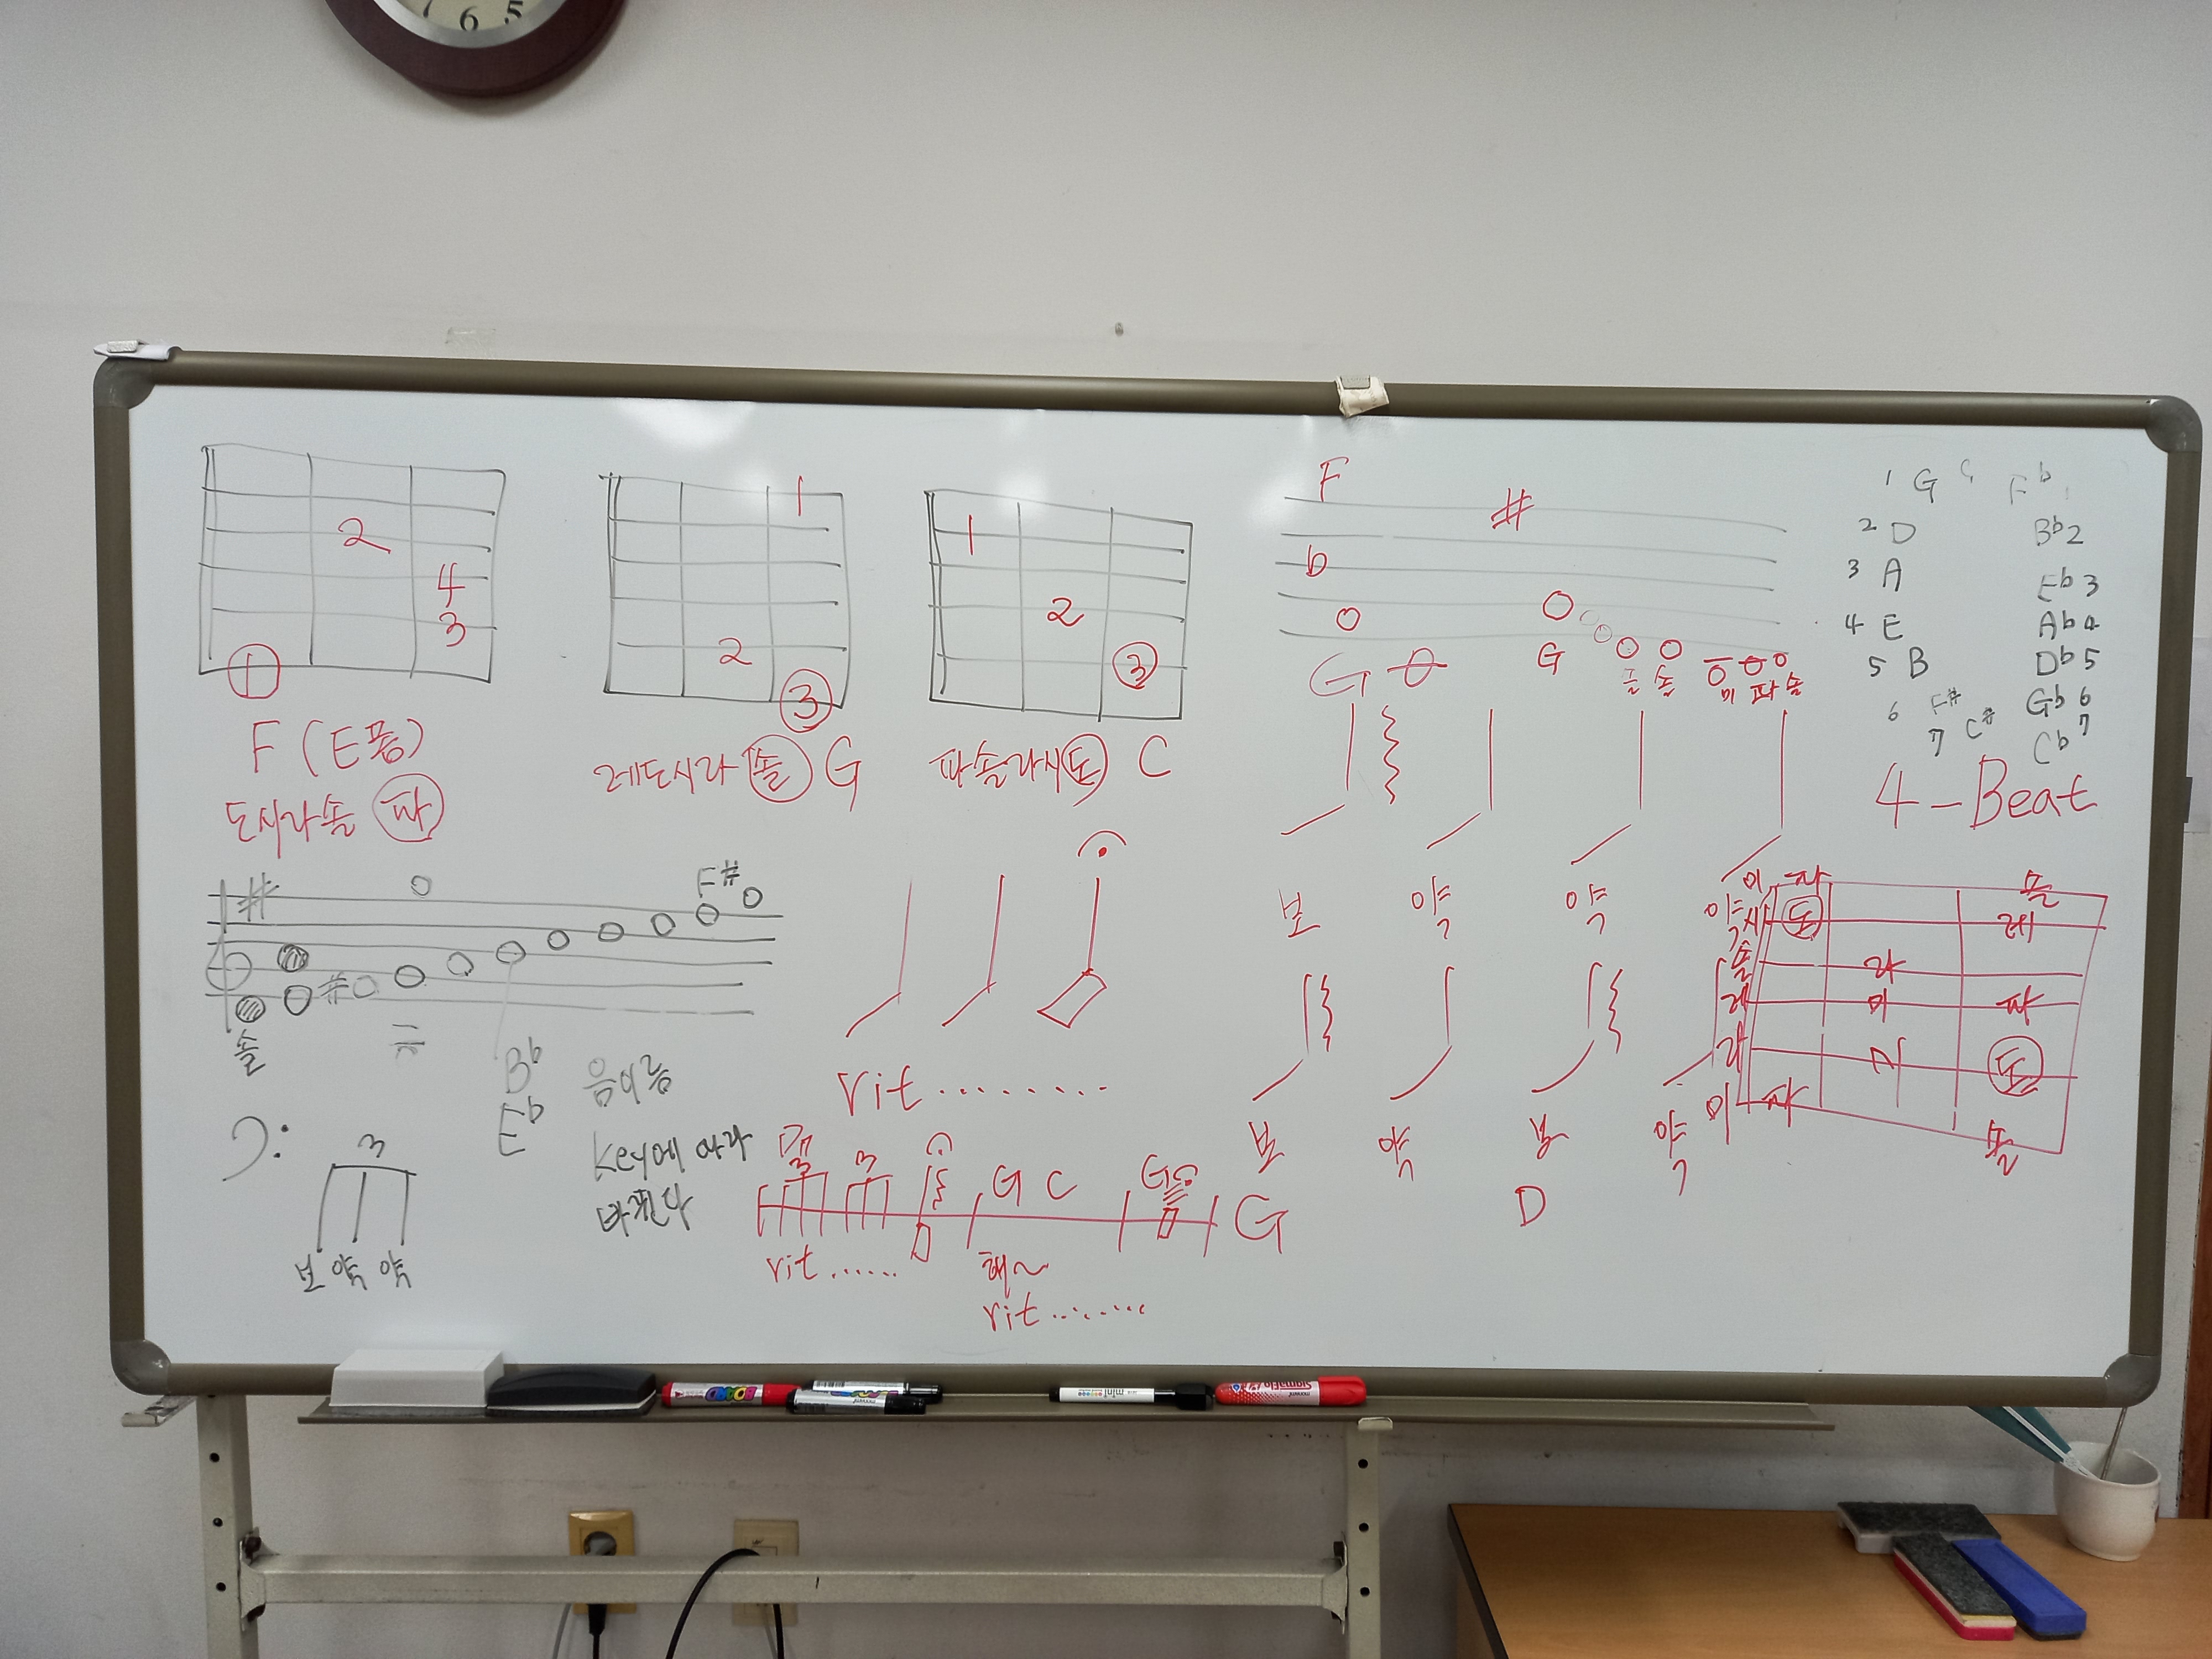 7 6 5
2
4
3
1
F (E폼)
도시라솔 파
1
2
3
레도시라 솔 G
1
2
3
파솔라시도 C
F
#
b
G
G
솔
미 파 솔
1 G
F b 1
2 D
Bb 2
3 A
Eb 3
4 E
Ab 4
5 B
Db 5
6 F#
Gb 6
7 C#
Cb 7
4-Beat
#
F#
#
솔
Bb
Eb
음이름
Key에 따라
바뀐다
3
보 약 약
rit.........
3 3
G C
G
G
rit......
해~
rit.........
보 약 약 약
보 약 보 약
D
미 파 솔
시 도 레
솔 라
레 미 파
라 시 도
미 파 솔
BOARD
monami
mini
monami SigmaFlo